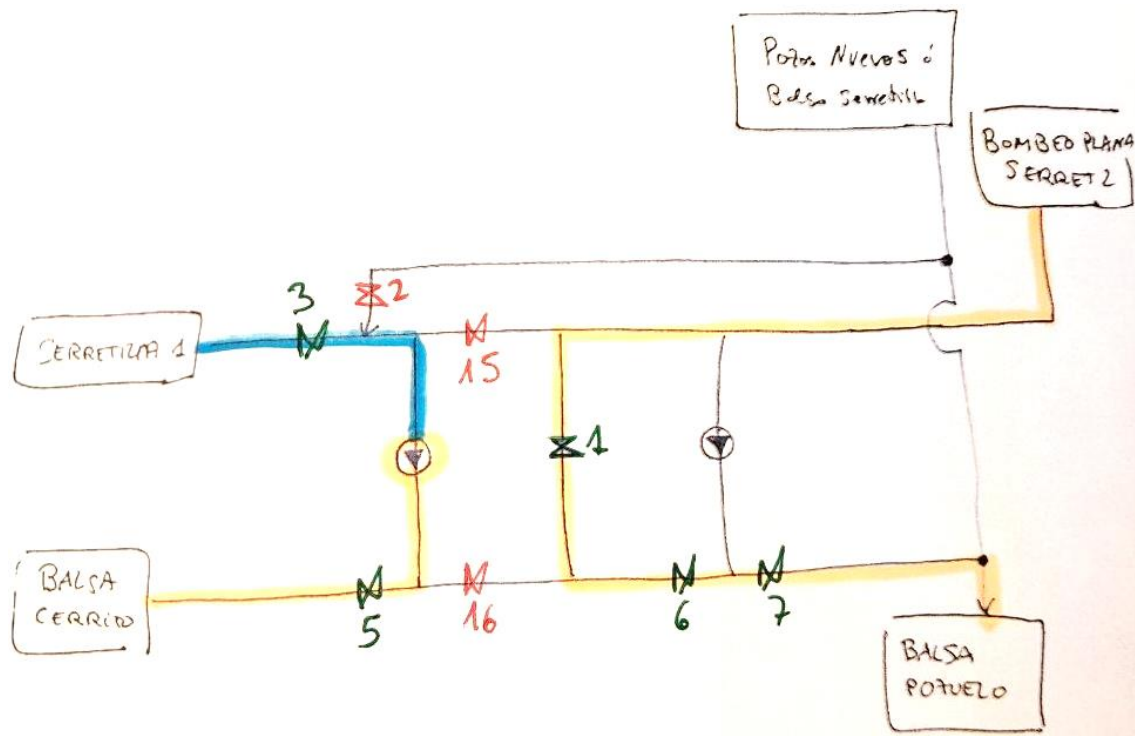 Pozos Nuevos ó
Balsa Serretilla
BOMBEO PLANA
SERRET 2
3
2
SERRETILLA 1
15
1
BALSA
CERRITO
5
16
6
7
BALSA
POZUELO